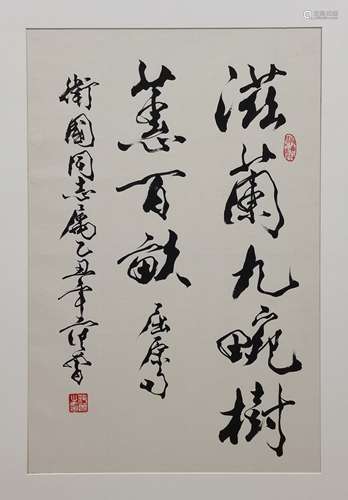 滋蘭九畹樹
蕙百畝 屈原句
衛國同志屬 乙丑年